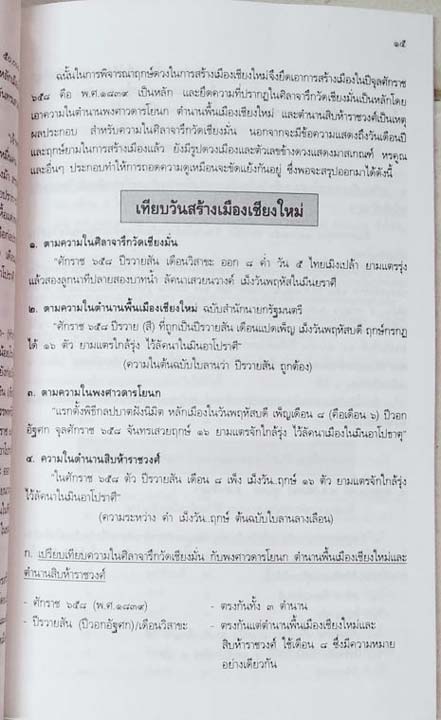 ๑๕
ฉนั้นในการพิจารณาฤกษ์ดวงในการสร้างเมืองเชียงใหม่จึงยึดเอาการสร้างเมืองในปีจุลศักราช
๖๕๘ คือ พ.ศ.๑๘๓๙ เป็นหลัก และยึดความที่ปรากฏในศิลาจารึกวัดเชียงมั่นเป็นหลักโดย
เอาความในตำนานพงศาวดารโยนก ตำนานพื้นเมืองเชียงใหม่ และตำนานสิบห้าราชวงศ์เป็นเหตุ
ผลประกอบ สำหรับความในศิลาจารึกวัดเชียงมั่น นอกจากจะมีข้อความแสดงถึงวันเดือนปี
และฤกษ์ยามในการสร้างเมืองแล้ว ยังมีรูปดวงเมืองและตัวเลขข้างดวงแสดงมาสเกณฑ์ หรคูณ
และอื่นๆ ประกอบทำให้การถอดความดูเหมือนจะขัดแย้งกันอยู่ ซึ่งพอจะสรุปออกมาได้ดังนี้
เทียบวันสร้างเมืองเชียงใหม่
๑. ตามความในศิลาจารึกวัดเชียงมั่น
"ศักราช ๖๕๘ ปีรวายสัน เดือนวิสาขะ ออก ๘ ค่ำ วัน ๕ ไทยเมิงเปล้า ยามแตรรุ่ง
แล้วสองลูกนาทีปลายสองบาทน้ำ ลัคนาเสวยนวางค์ เม็งวันพฤหัสในมีนยราศี
๒. ตามความในตำนานพื้นเมืองเชียงใหม่ ฉบับสำนักนายกรัฐมนตรี
"ศักราช ๖๕๘ ปีรวาย (สี) ที่ถูกเป็นปีรวายสัน เดือนแปดเพ็ญ เม็งวันพฤหัสบดี ฤกษ์กรกฎ
ได้ ๑๖ ตัว ยามแตรใกล้รุ่ง ไว้ลัคนาในมีนอาโปราศี"
(ความในต้นฉบับใบลานว่า ปีรวายสัน ถูกต้อง)
๓. ตามความในพงศาวดารโยนก
"แรกตั้งพิธีกลปบาตฝังนิมิต หลักเมืองในวันพฤหัสบดี เพ็ญเดือน ๘ (คือเดือน ๖) ปีวอก
อัฐศก จุลศักราช ๖๕๘ จันทรเสวยฤกษ์ ๑๖ ยามแตรจักใกล้รุ่ง ไว้ลัคนาเมืองในมีนอาโปธาตุ"
๔. ความในตำนานสิบห้าราชวงศ์
"ในศักราช ๖๕๘ ตัว ปีรวายสัน เดือน ๘ เพ็ง เม็งวัน..ฤกษ์ ๑๖ ตัว ยามแตรจักใกล้รุ่ง
ไว้ลัคนาในมีนอาโปราศี"
(ความระหว่าง คำ เม็งวัน..ฤกษ์ ต้นฉบับใบลานลางเลือน)
ก. เปรียบเทียบความในศิลาจารึกวัดเชียงมั่น กับพงศาวดารโยนก ตำนานพื้นเมืองเชียงใหม่และ
ตำนานสิบห้าราชวงศ์
- ศักราช ๖๕๘ (พ.ศ.๑๘๓๙) - ตรงกันทั้ง ๓ ตำนาน
- ปีรวายสัน (ปีวอกอัฐศก)/เดือนวิสาขะ - ตรงกันแต่ตำนานพื้นเมืองเชียงใหม่และ
สิบห้าราชวงศ์ ใช้เดือน ๘ ซึ่งมีความหมาย
อย่างเดียวกัน